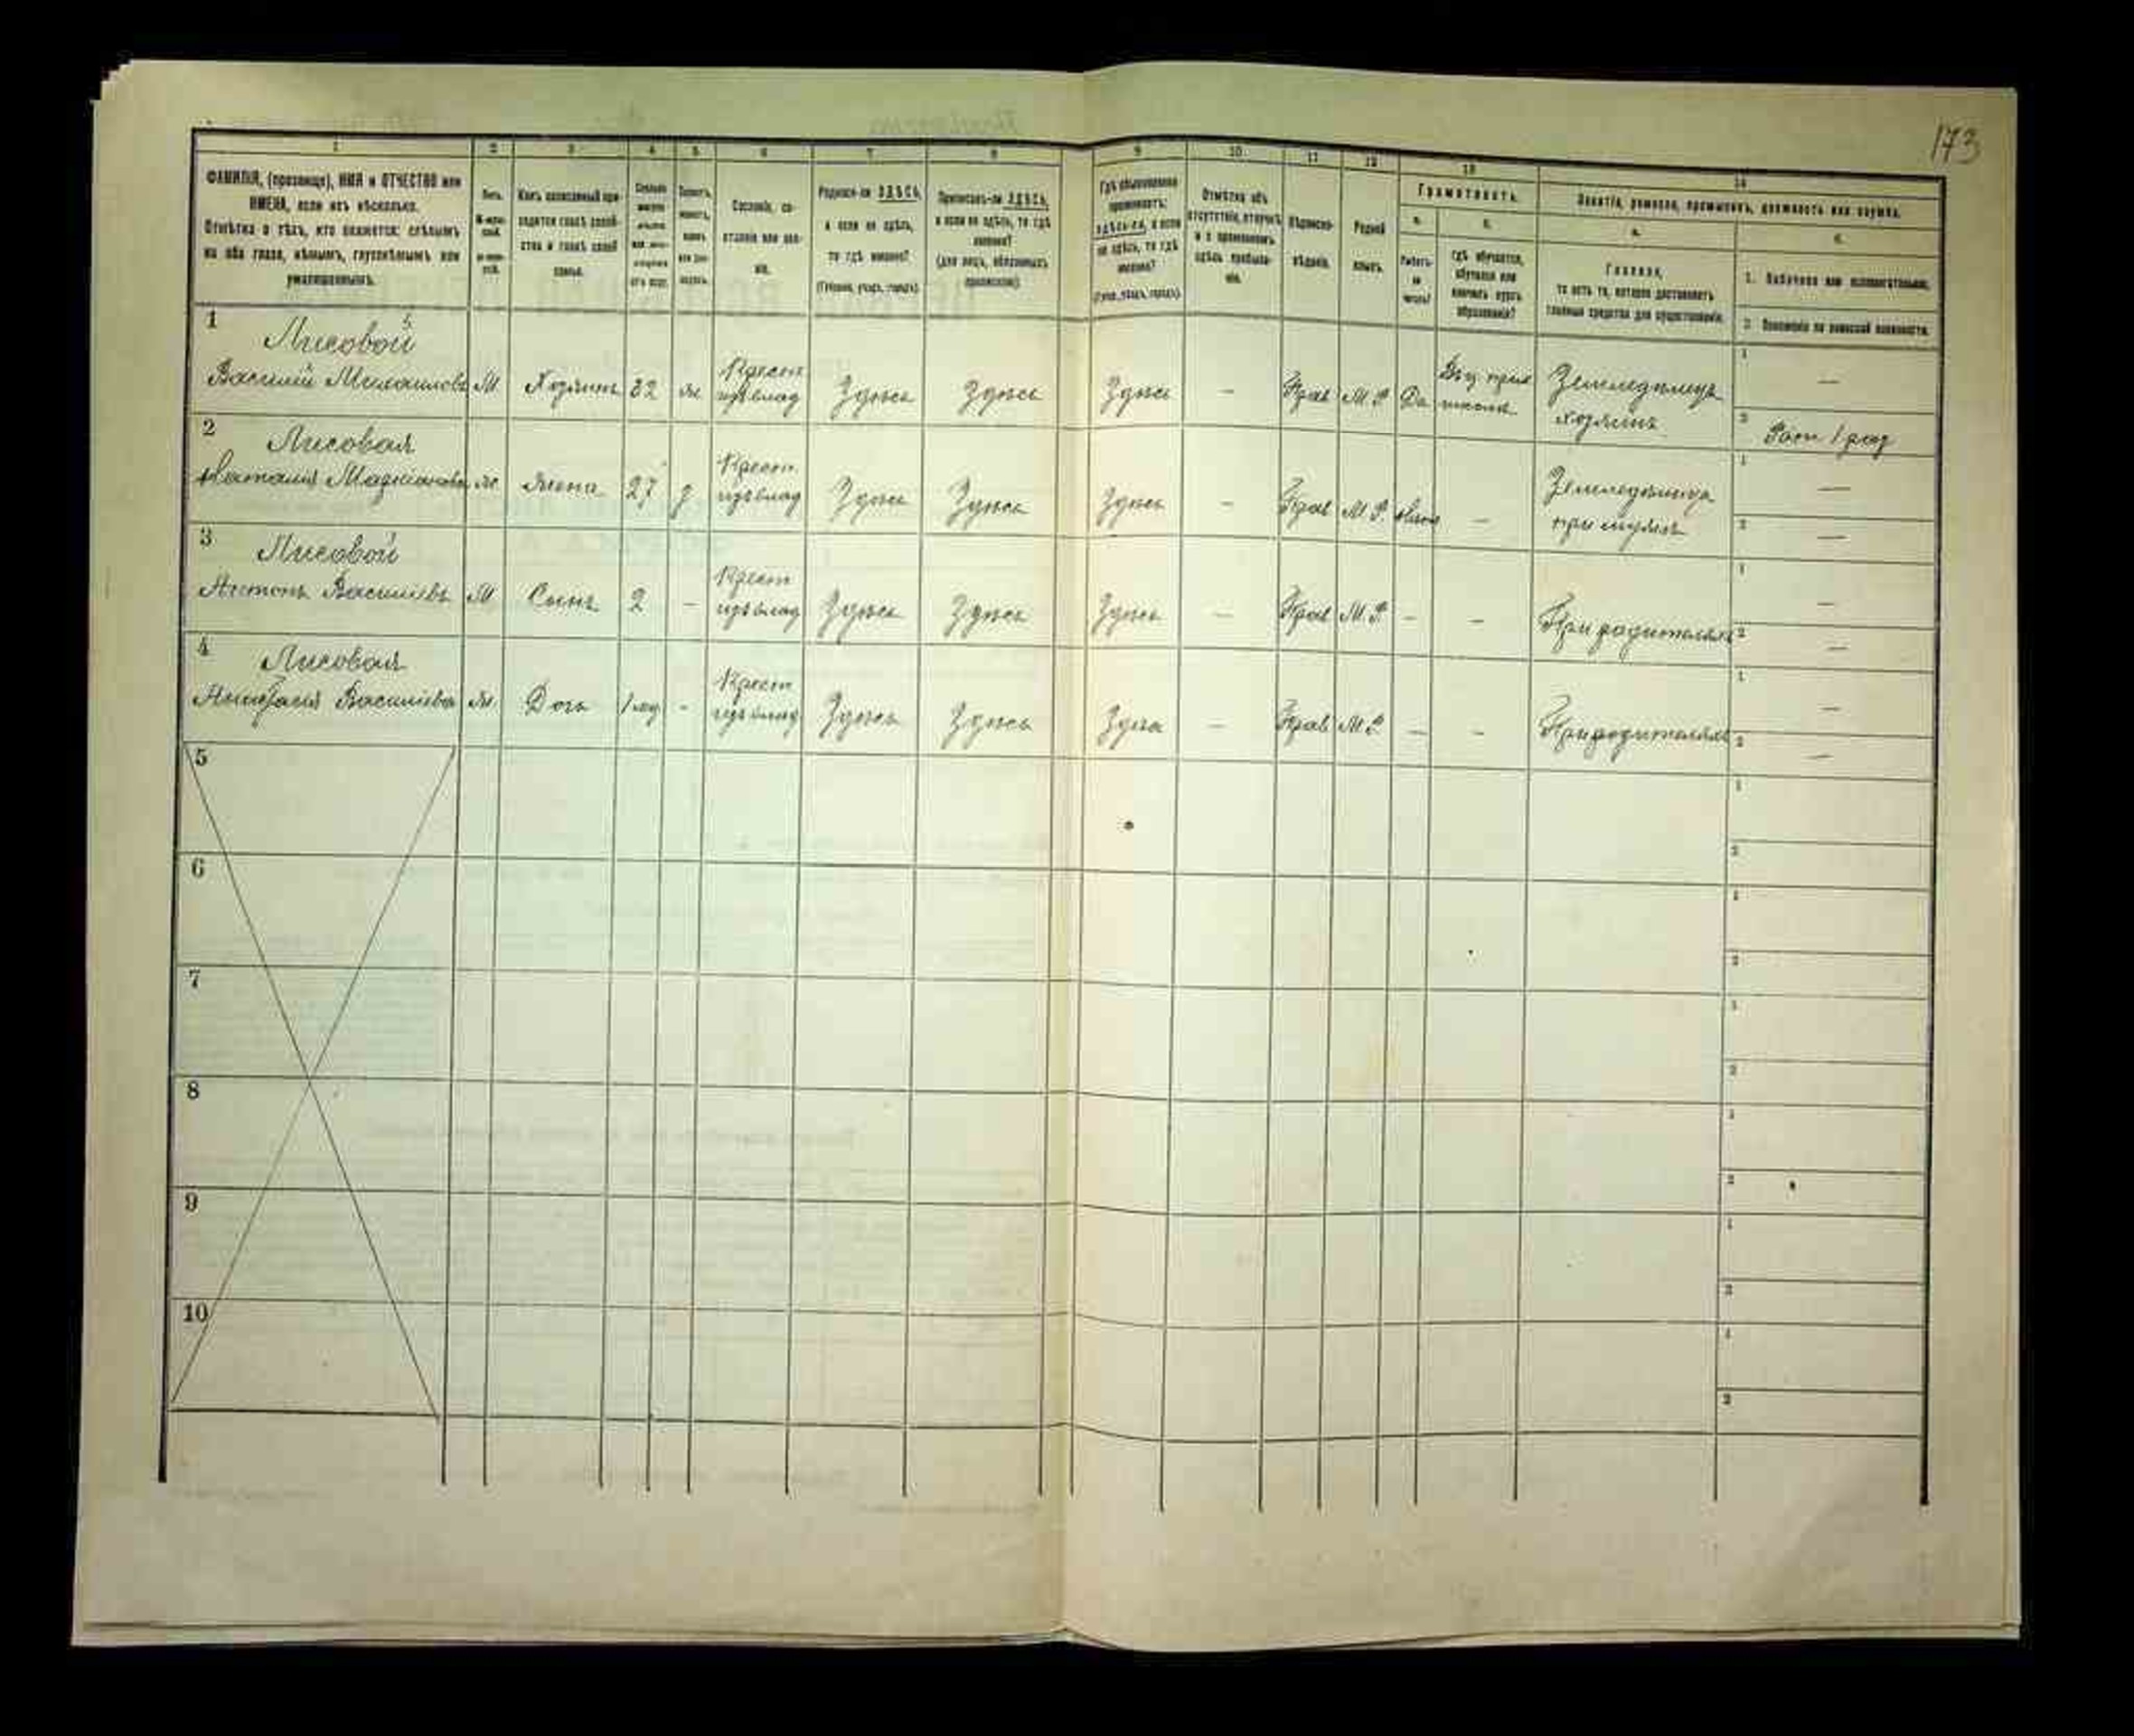 173
1 2 3 4 5 6 7 8 9 10 11 12 13 14
ФАМИЛІЯ, (прозвище), ИМЯ и ОТЧЕСТВО или
ИМЕНА, если ихъ нѣсколько.
Отмѣтка о тѣхъ, кто окажется: слѣпымъ
на оба глаза, нѣмымъ, глухонѣмымъ или
умалишеннымъ.
Полъ.
Какъ записанный при-
ходится главѣ хозяй-
ства и главѣ своей
семьи.
Сословіе, со-
стояніе или зва-
ніе.
Родился-ли ЗДѢСЬ,
а если не здѣсь,
то гдѣ именно?
(Губернія, уѣздъ, городъ).
Приписанъ-ли ЗДѢСЬ,
а если не здѣсь, то гдѣ
именно?
(для лицъ, обязанныхъ
припиской).
Гдѣ обыкновенно
проживаетъ:
здѣсь-ли, а если
не здѣсь, то гдѣ
именно?
(Губер., уѣздъ, городъ).
Отмѣтка объ
отсутствіи, отлучкѣ
и о временномъ
здѣсь пребыва-
ніи.
Вѣроиспо-
вѣданіе.
Родной
языкъ.
Грамотность.
а. б.
Умѣетъ-
ли
читать?
Гдѣ обучается,
обучался или
кончилъ курсъ
образованія?
Занятіе, ремесло, промыселъ, должность или служба.
а. б.
Главное,
то есть то, которое доставляетъ
главныя средства для существованія.
1. Побочное или вспомогательное.
2. Положеніе по воинской повинности.
1 Лисовой
Василій Михаиловъ М Хозяинъ 32 Крест Здѣсь Здѣсь Здѣсь - Прав М.Р Да школѣ Земледѣлецъ хозяинъ 1 — 2 Рат 1 раз
2 Лисовая
Наталія ж Жена 27 Крест Здѣсь Здѣсь Здѣсь - Прав М.Р. - Земледѣлица при мужѣ 1 — 2 —
3 Лисовой
Антонъ Васильевъ М Сынъ 2 - Крест Здѣсь Здѣсь Здѣсь - Прав М.Р - - При родителяхъ 1 — 2 —
4 Лисовая
Васильева ж Дочь - Крест Здѣсь Здѣсь Здѣсь - Прав М.Р - - При родителяхъ 1 — 2 —
5 1 2
6 1 2
7 1 2
8 1 2
9 1 2
10 1 2